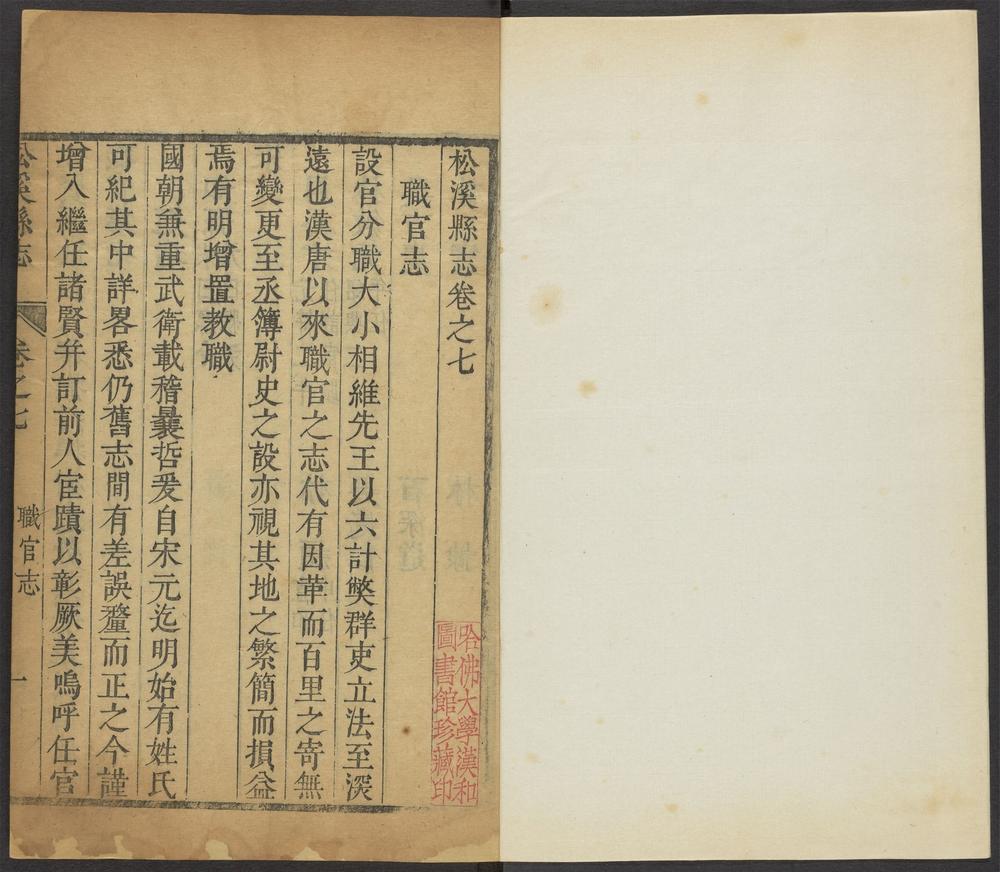 松溪縣志卷之七
職官志
設官分職大小相維先王以六計獘群吏立法至深
遠也漢唐以來職官之志代有因革而百里之寄無
可變更至丞簿尉史之設亦視其地之繁簡而損益
焉有明增置教職
國朝兼重武衛載稽曩哲爰自宋元迄明始有姓氏
可紀其中詳畧悉仍舊志間有差誤釐而正之今謹
增入繼任諸賢并訂前人宦蹟以彰厥美嗚呼任官
松溪縣志 卷之七 職官志 一
哈佛大學漢和
圖書館珍藏印